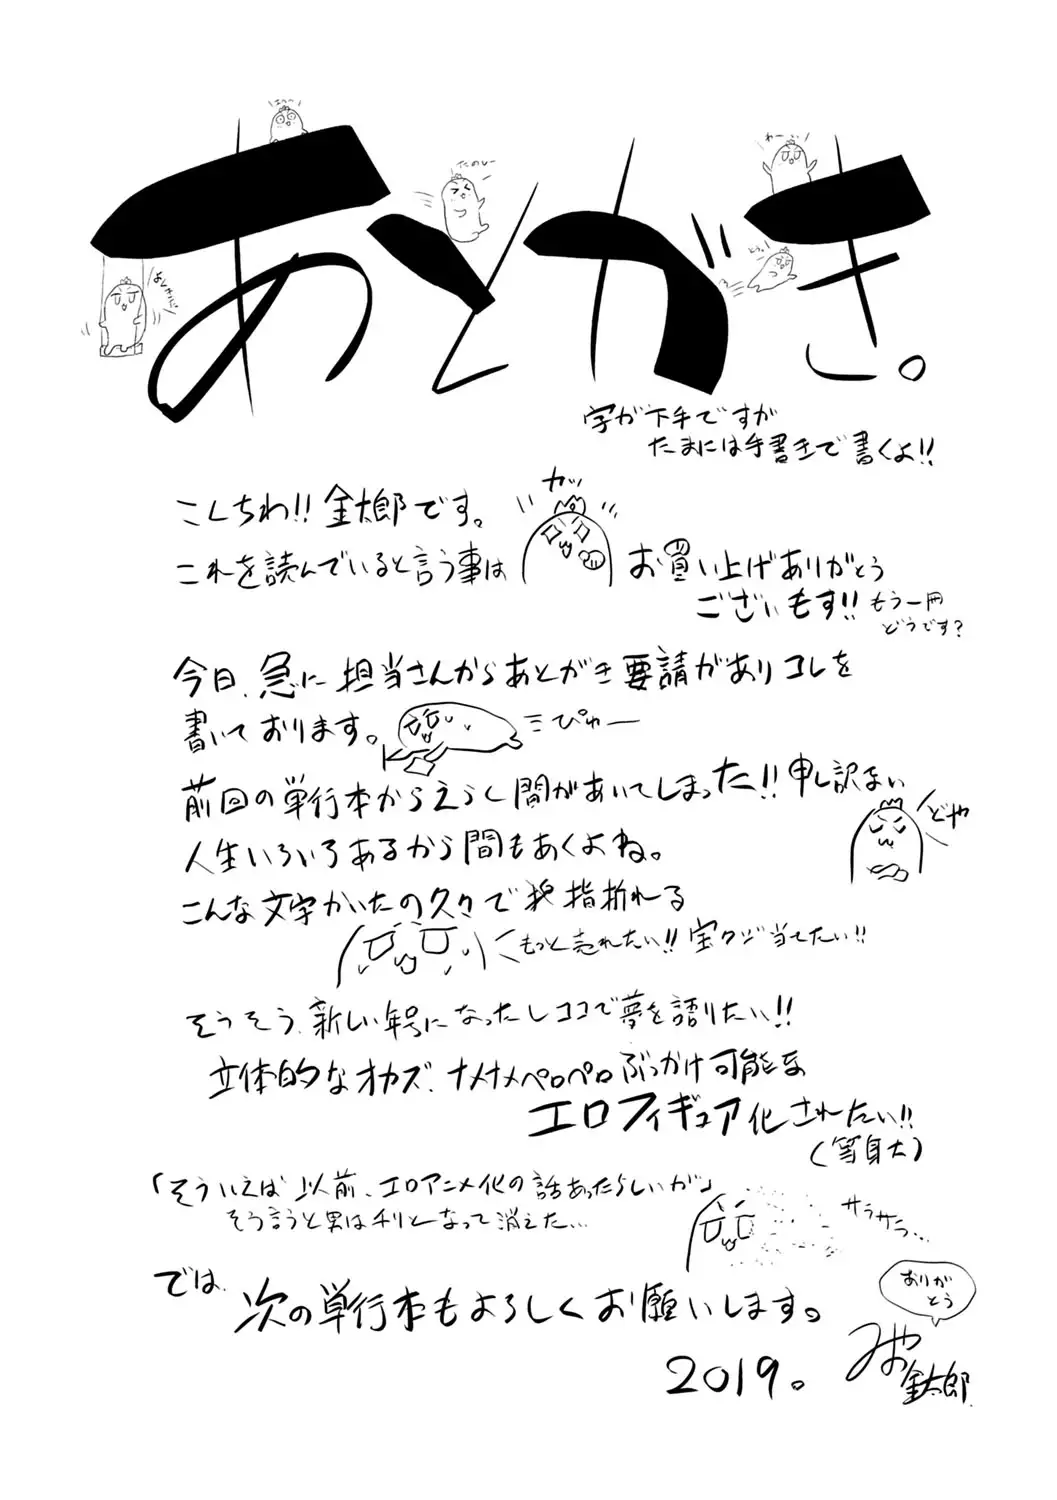 はうへ
たのしー
わーーい
とうっ
あとがき。
字が下手ですが
たまには手書きで書くよ!!
こんちわ!!金太郎です。
カッ
これを読んでいると言う事は
お買い上げありがとう
ございもす!! もう一冊
どうです?
今日、急に担当さんからあとがき要請がありコレを
書いております。
ぴゅー
前回の単行本からえらく間があいてしまった!!申し訳ない
どや
人生いろいろあるから間もあくよね。
こんな文字かいたの久々で 指折れる
もっと売れたい!!宝クジ当てたい!!
そうそう、新しい年号になったしココで夢を語りたい!!
立体的なオカズ、ナメナメペロペロぶっかけ可能な
エロフィギュア化されたい!!
(等身大)
「そういえば以前、エロアニメ化の話あったらしいが」
そう言うと男はチリとなって消えた…
サラサラ…
では、
次の単行本もよろしくお願いします。
ありがとう
2019。
みやの金太郎